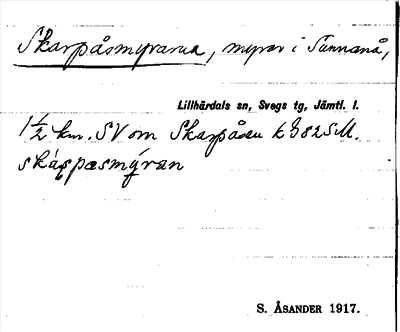 Skarpåsmyrarna, myrar i Sunnanå,
Lillhärdals sn, Svegs tg, Jämtl. l.
1½ km. SV om Skarpåsen
skáṣpæsmýran
S. ÅSANDER 1917.